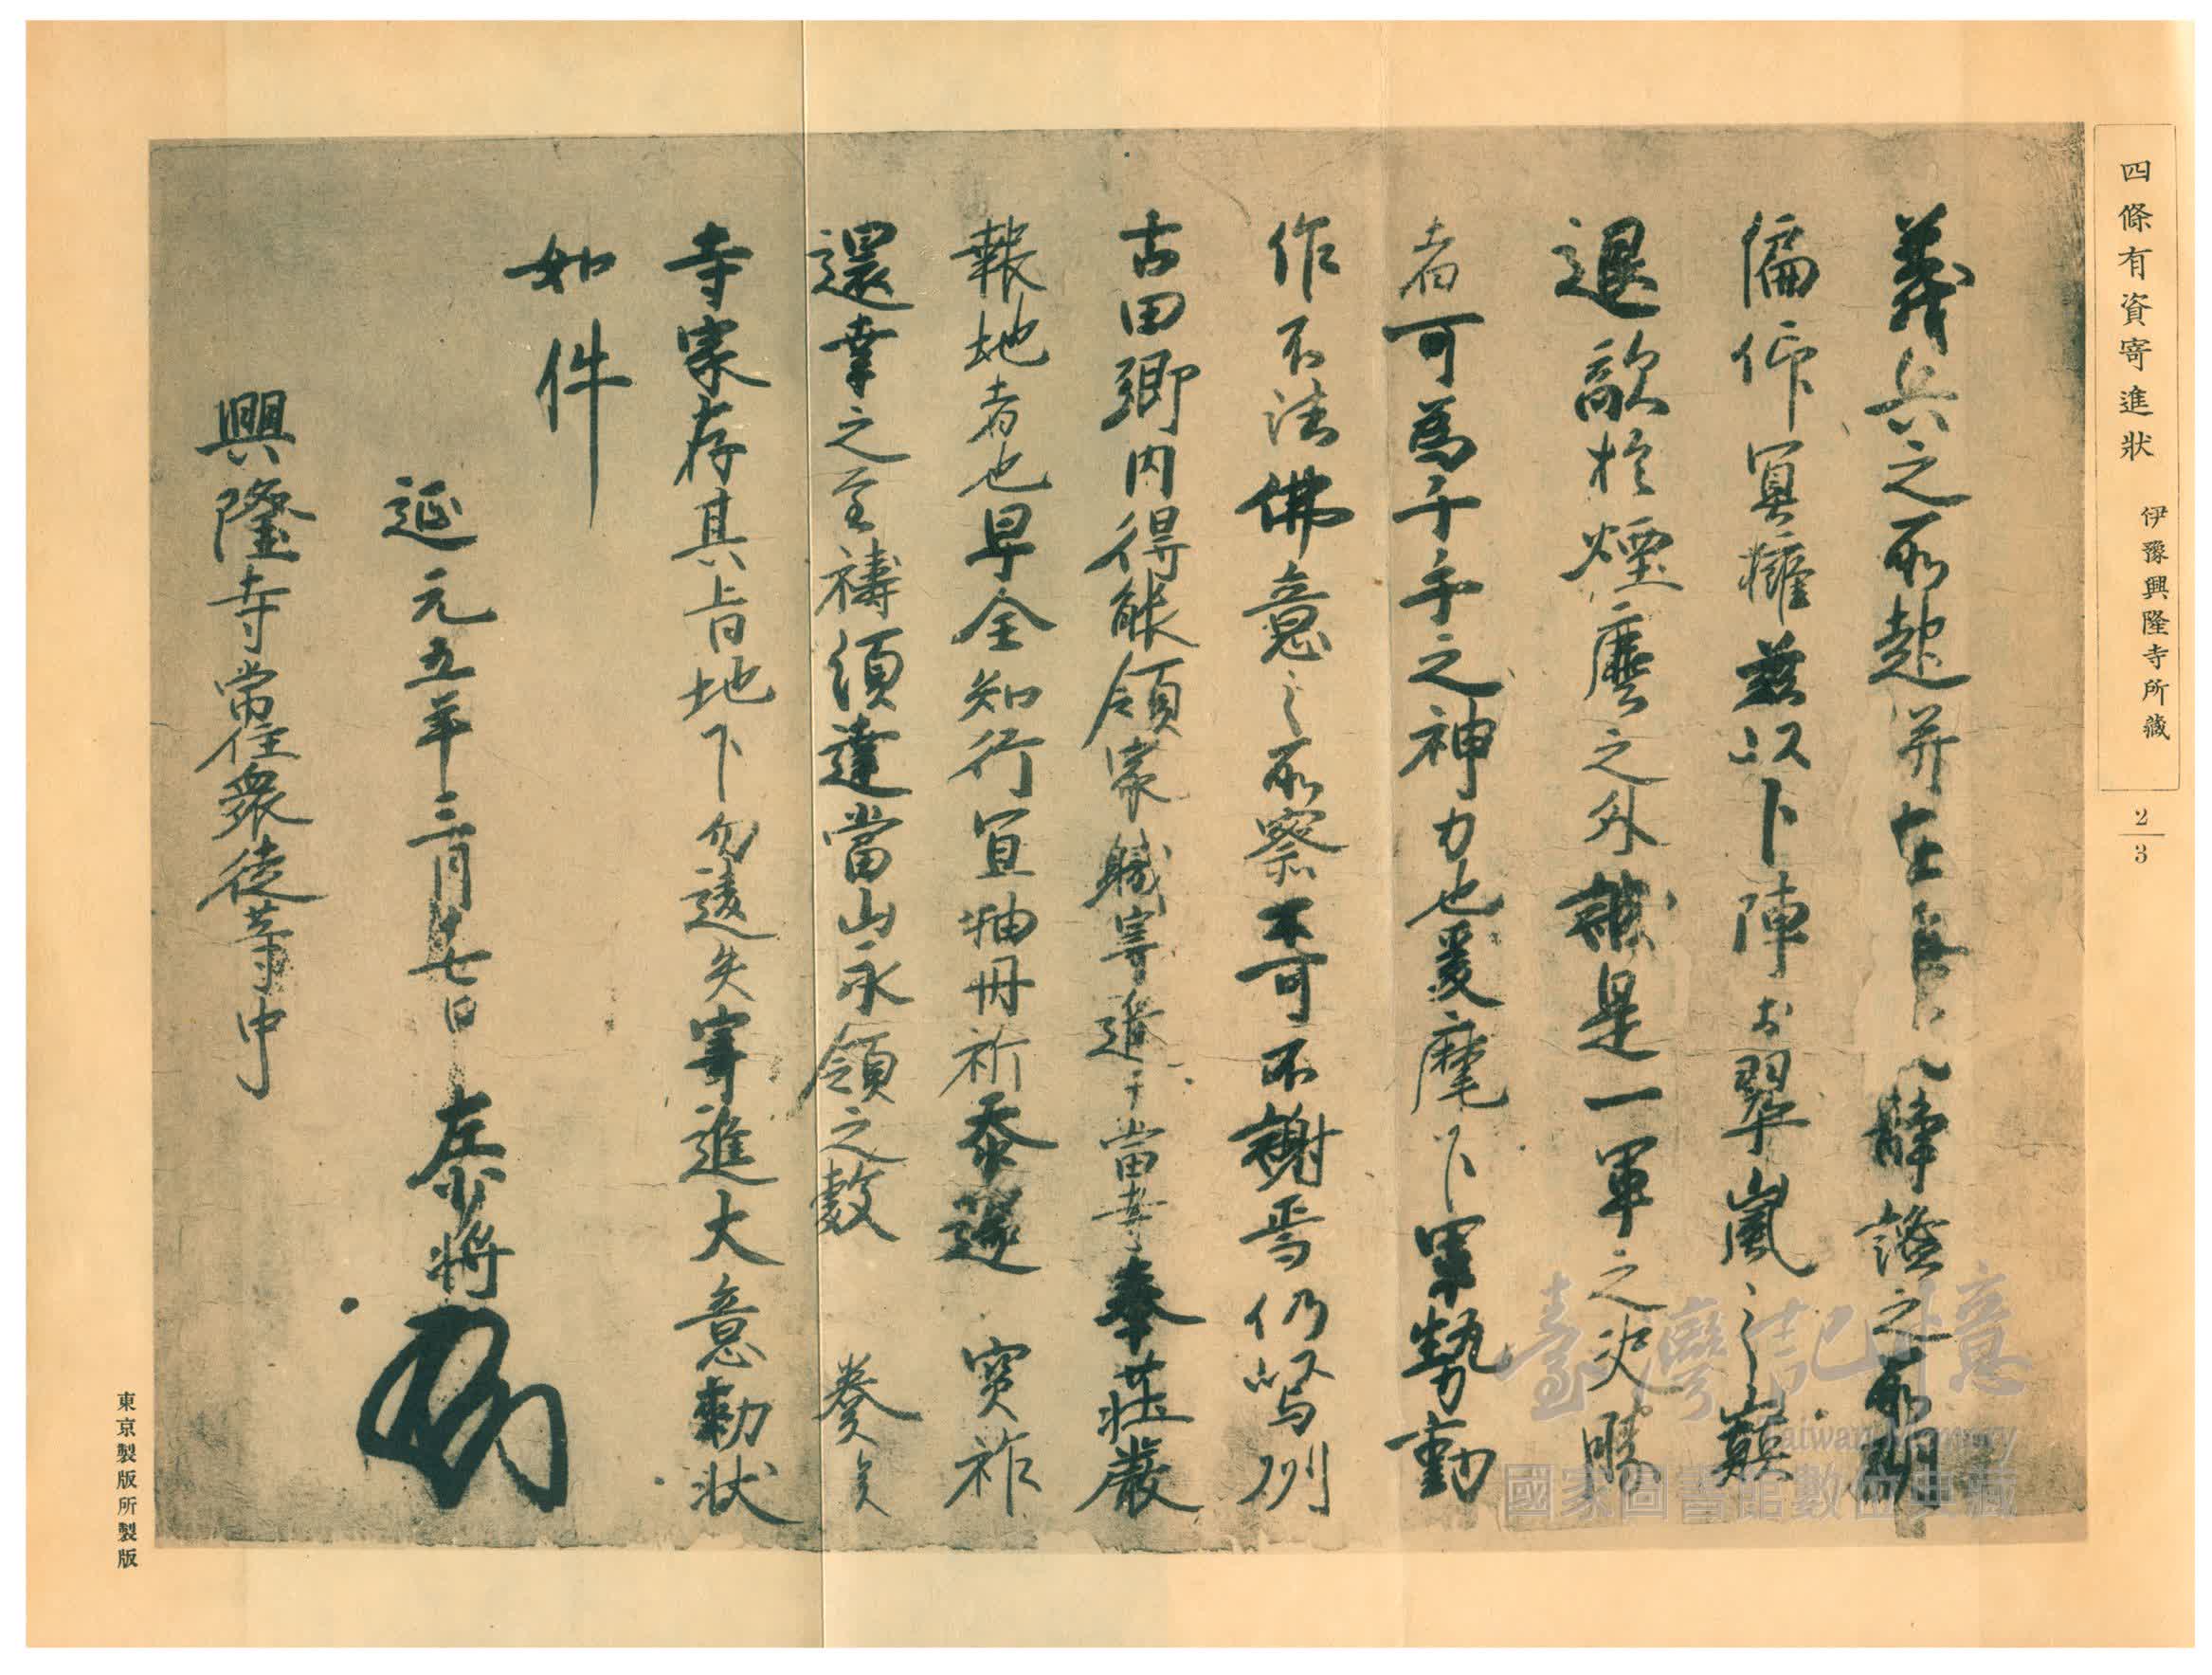 四條有資寄進狀
伊豫興隆寺所藏
2/3
義兵之所起并在
靜謐之所期
偏仰冥權茲以卜陣於翠嵐之巓
退敵於煙塵之外誠是一軍之決勝
者可為千手之神力也爰麾下軍勢動
作不法佛意之所察不可不謝焉仍以當州
古田鄉内得能領家職寄進于當寺奉莊嚴
報地者也早全知行宜抽丹祈泰運 寶祚
還幸之至禱須達當山永領之數 矣
寺家存其旨地下勿違失寄進大意勒狀
如件
延元五年三月十七日 左少將
興隆寺常住衆徒等中
東京製版所製版
臺灣記憶
Taiwan Memory
國家圖書館數位典藏